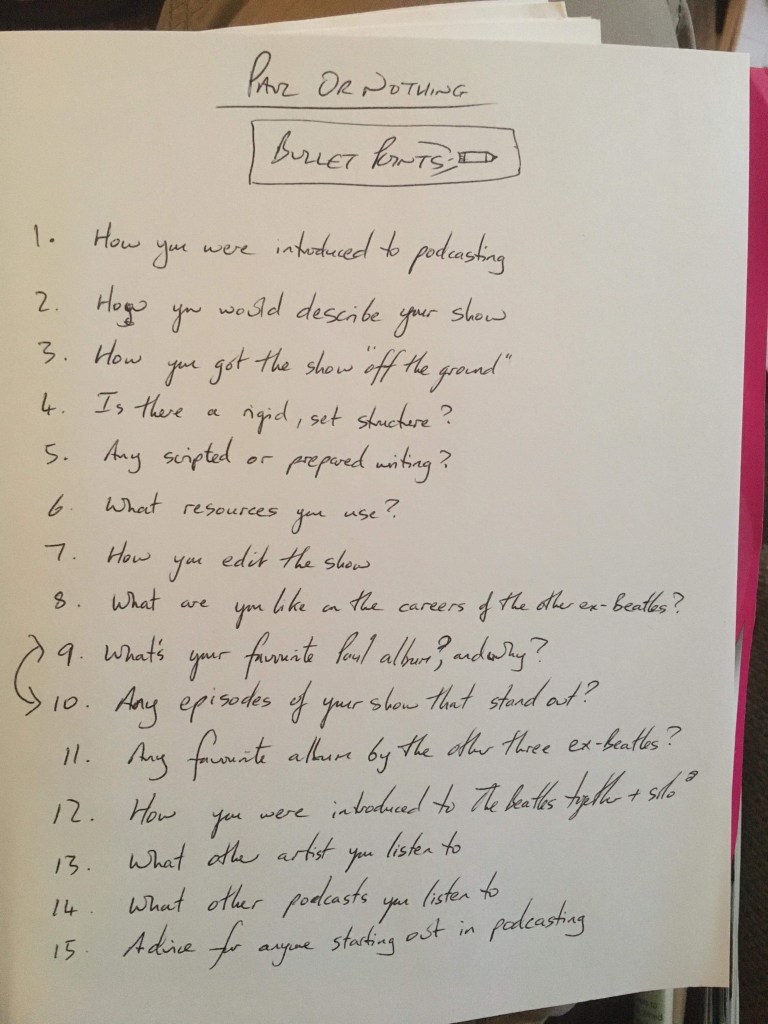 PAUL OR NOTHING
BULLET POINTS:
1. How you were introduced to podcasting
2. How you would describe your show
3. How you got the show "off the ground"
4. Is there a rigid, set structure?
5. Any scripted or prepared writing?
6. What resources you use?
7. How you edit the show
8. What are you like on the careers of the other ex-Beatles?
9. What's your favourite Paul album?, and why?
10. Any episodes of your show that stand out?
11. Any favourite album by the other three ex-Beatles?
12. How you were introduced to The Beatles together + solo?
13. What other artist you listen to
14. What other podcasts you listen to
15. Advice for anyone starting out in podcasting